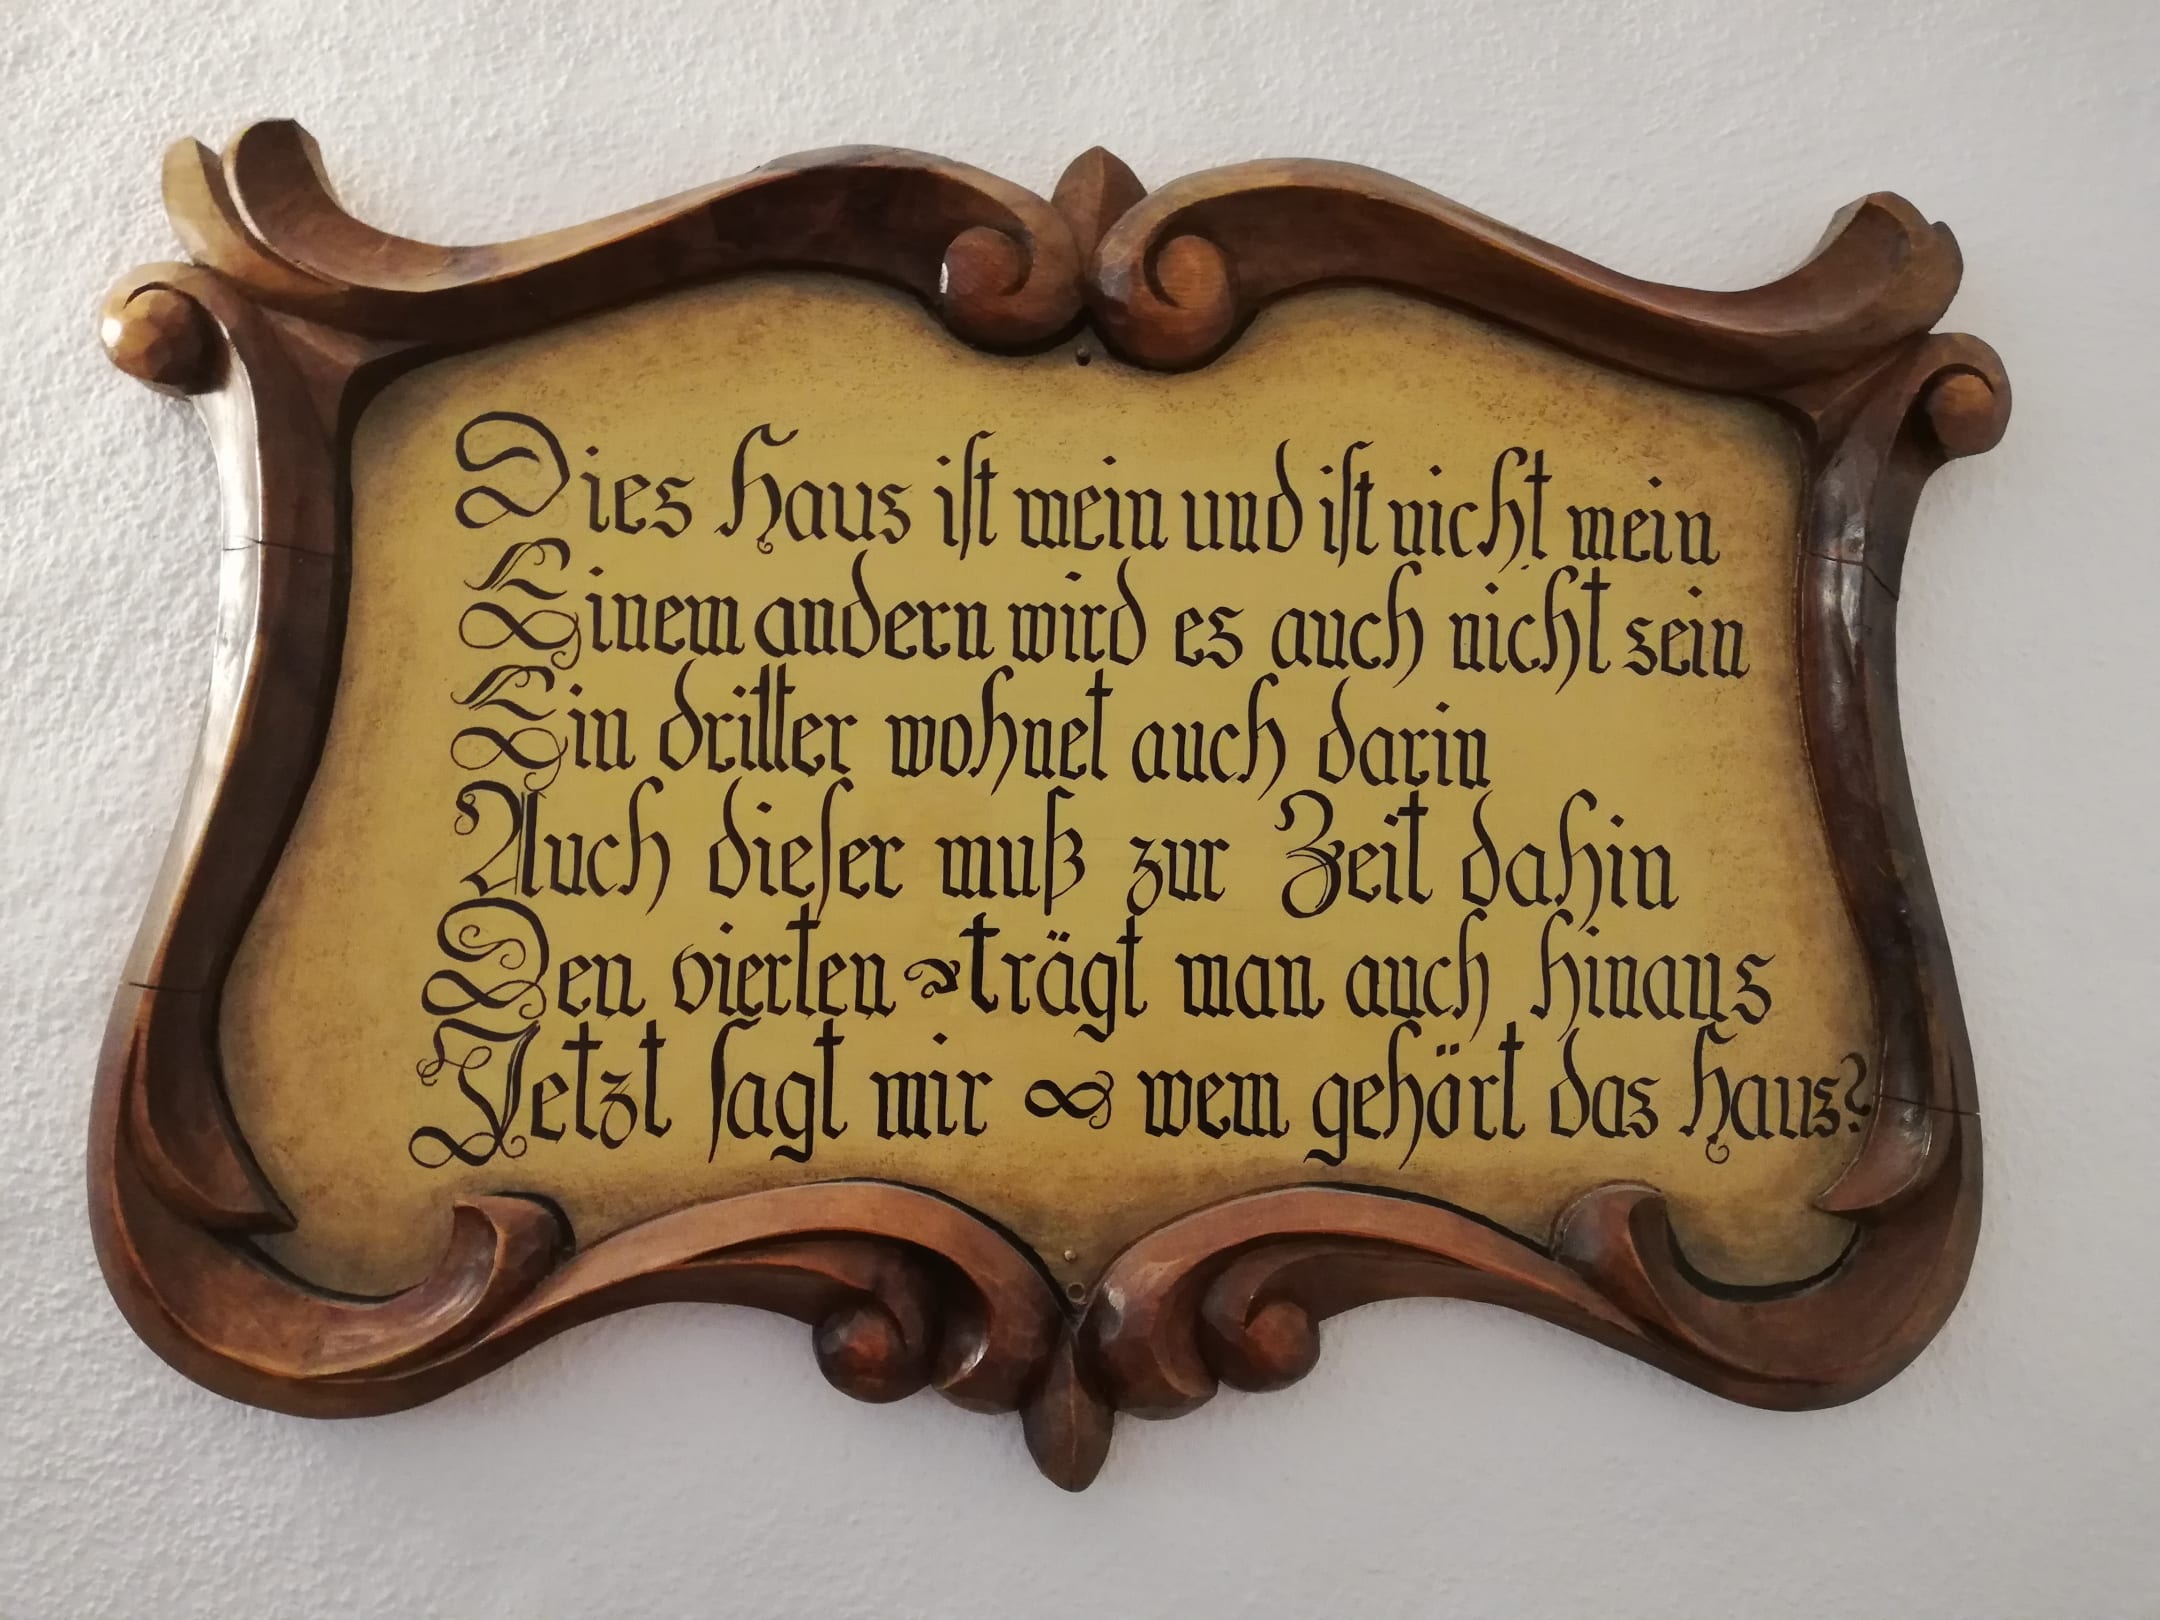 Dies Haus ist mein und ist nicht mein
Einem andern wird es auch nicht sein
Ein dritter wohnet auch darin
Auch dieser muß zur Zeit dahin
Den vierten trägt man auch hinaus
Jetzt sagt mir wem gehört das Haus?